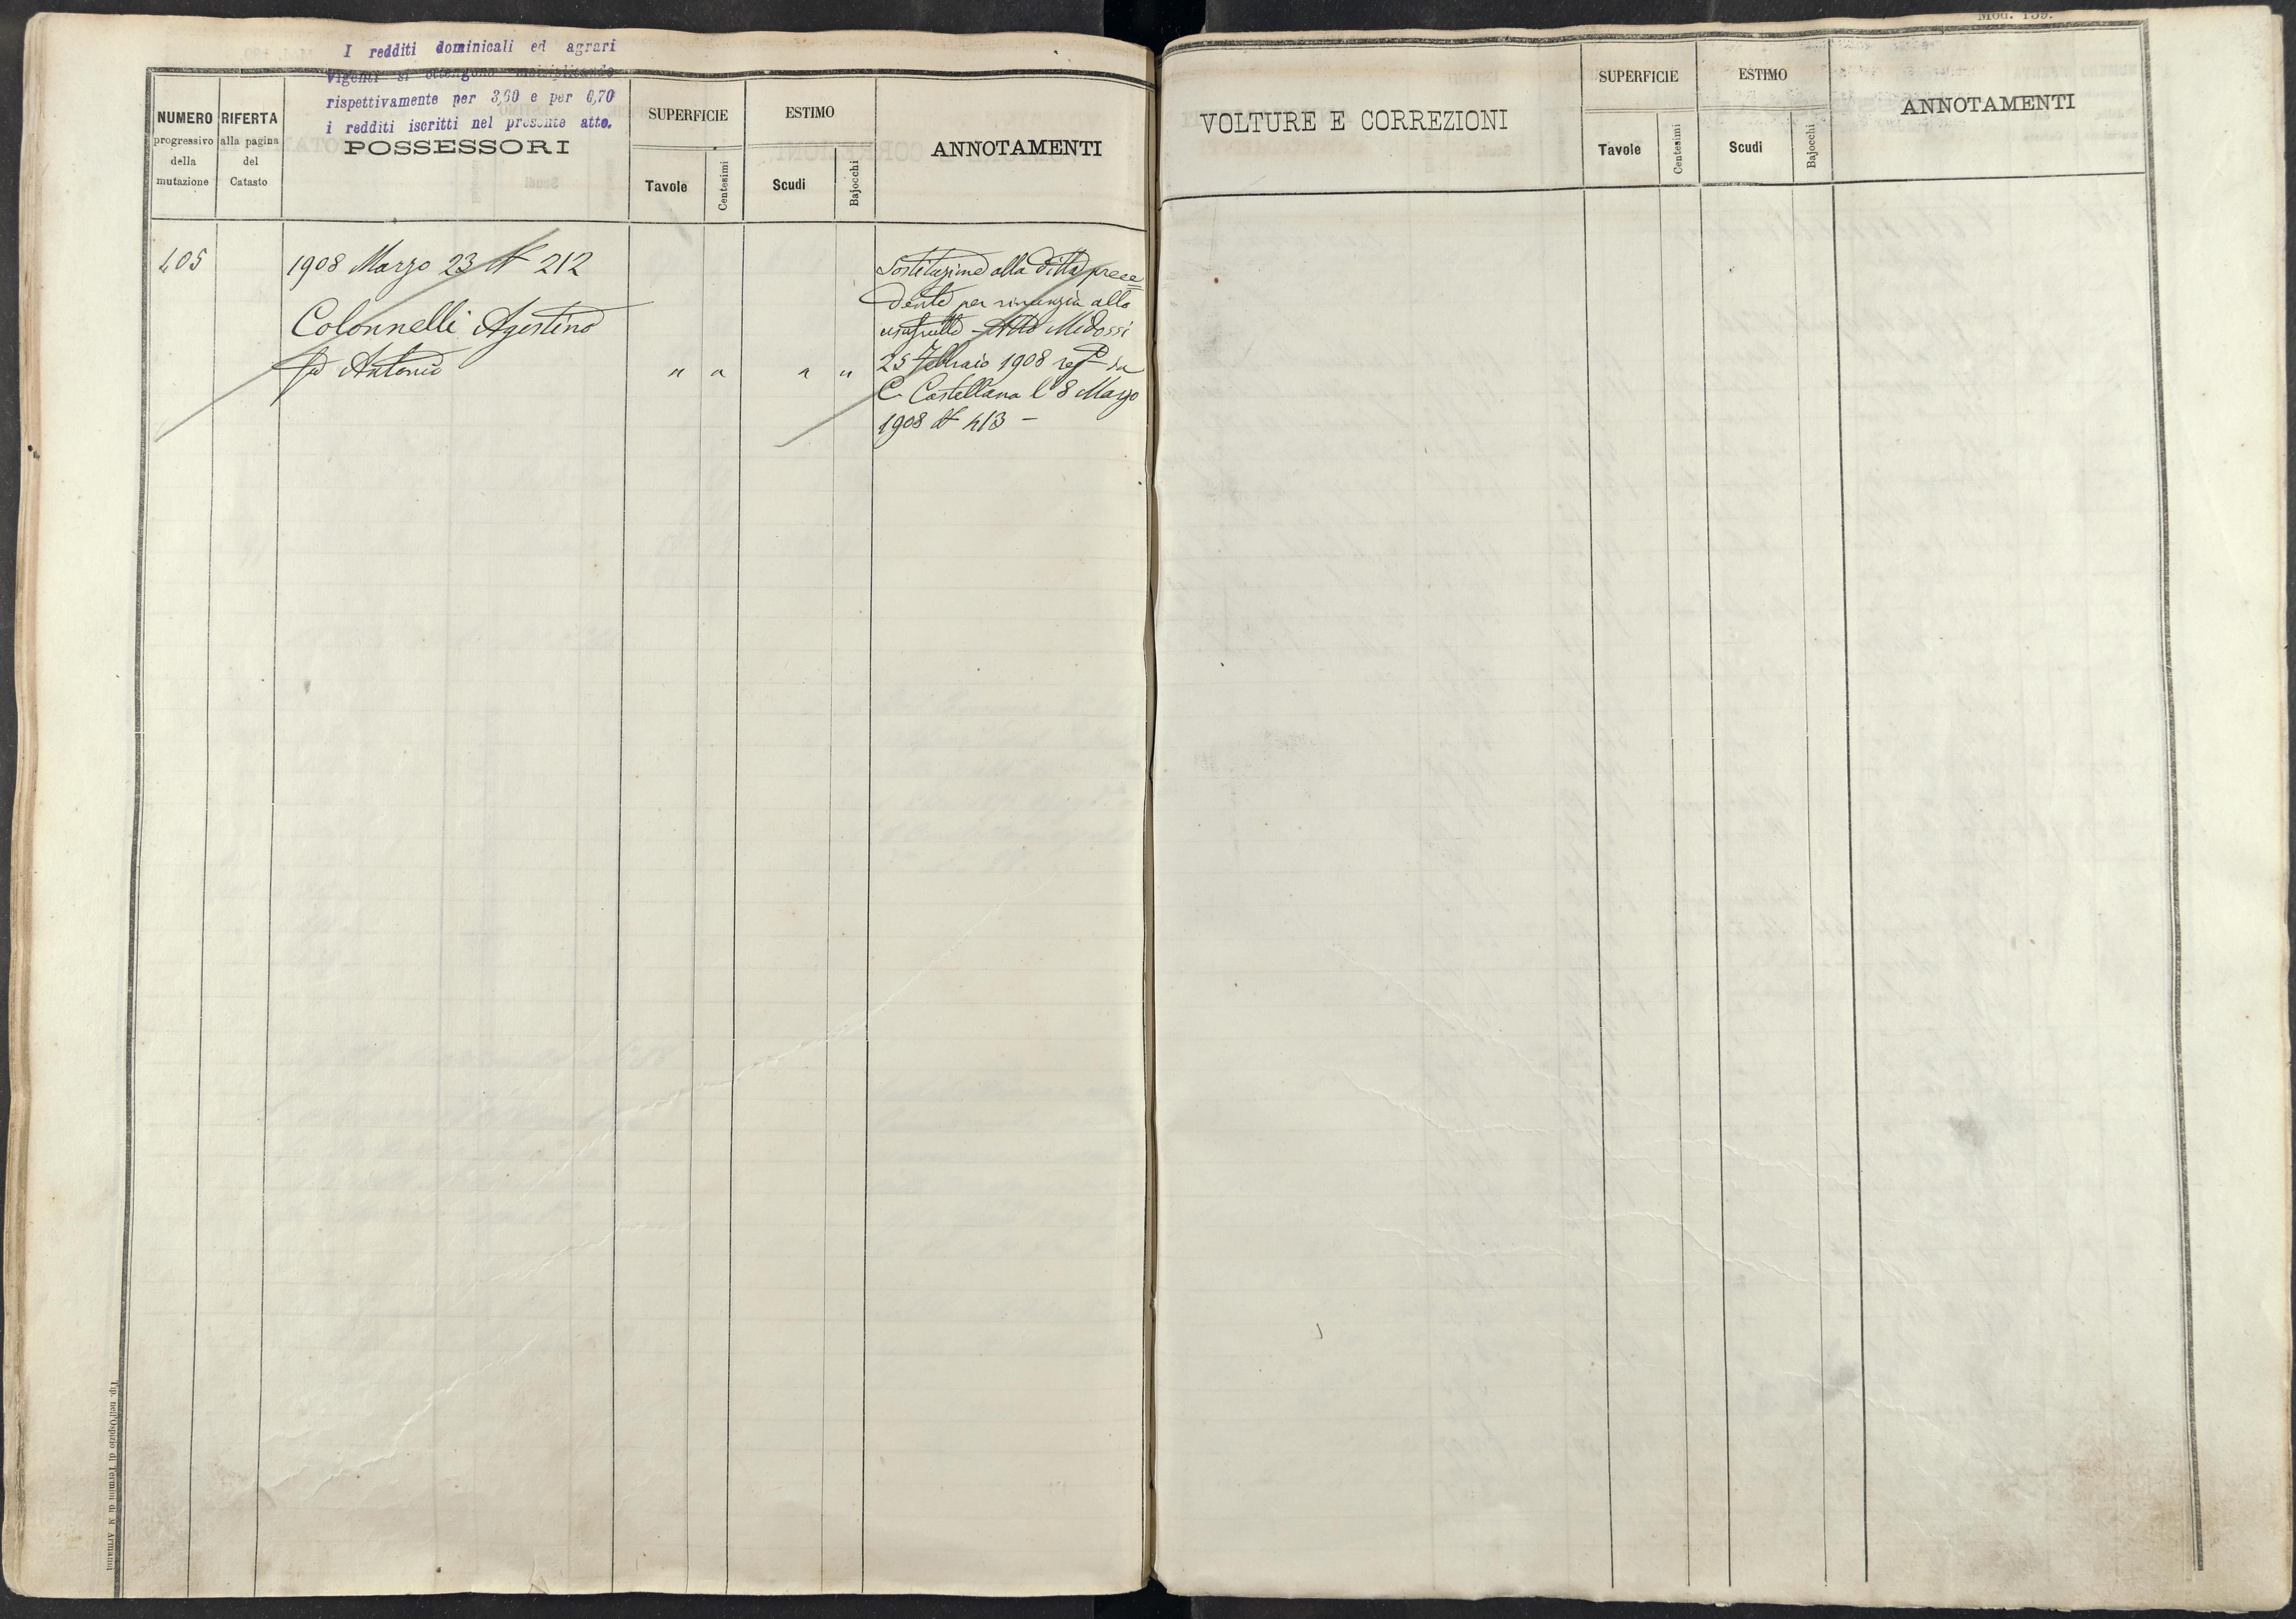 I redditi dominicali ed agrari
vigenti si ottengono moltiplicando
rispettivamente per 3,60 e per 0,70
i redditi iscritti nel presente atto.
NUMERO
progressivo
della
mutazione
RIFERTA
alla pagina
del
Catasto
POSSESSORI
SUPERFICIE
Tavole
Centesimi
ESTIMO
Scudi
Bajocchi
ANNOTAMENTI
405
1908 Marzo 23 N 212
Colonnelli Agostino
fu Antonio
" "
" "
Sostituzione alla ditta prece
dente per rinunzia allo
usufrutto - Atto Midossi
25 Febbraio 1908 regto in
C. Castellana l'8 Marzo
1908 N 413 -
Tip. nell'Ospizio di Termini di N. Armanni
Mod. 139.
VOLTURE E CORREZIONI
SUPERFICIE
Tavole
Centesimi
ESTIMO
Scudi
Bajocchi
ANNOTAMENTI